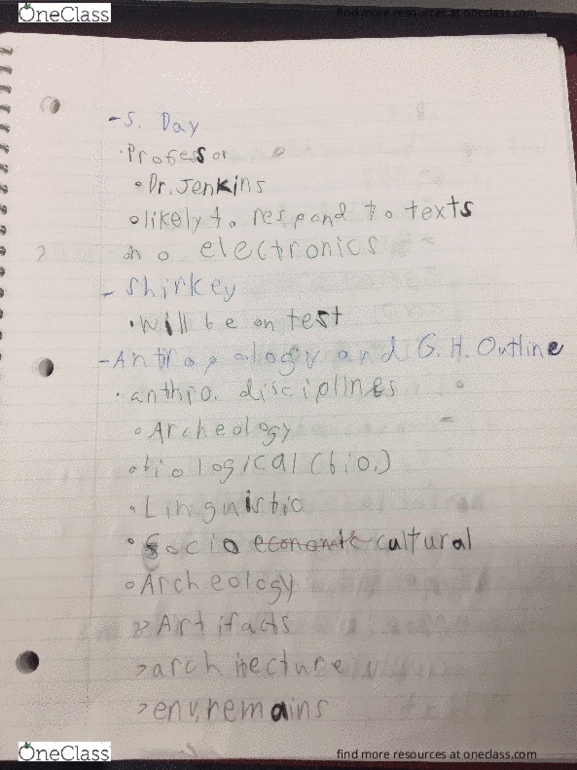 OneClass
find more resources at oneclass.com
-S. Day
·Professor
•Dr. Jenkins
•likely to respond to texts
2
no electronics
-Shirkey
•will be on test
-Anthropology and G.H. Outline
·anthro. disciplines
•Archeology
•biological (bio.)
•Linguistic
•Socio economic cultural
•Archeology
>>Artifacts
>architecture
>env. remains
OneClass
find more resources at oneclass.com